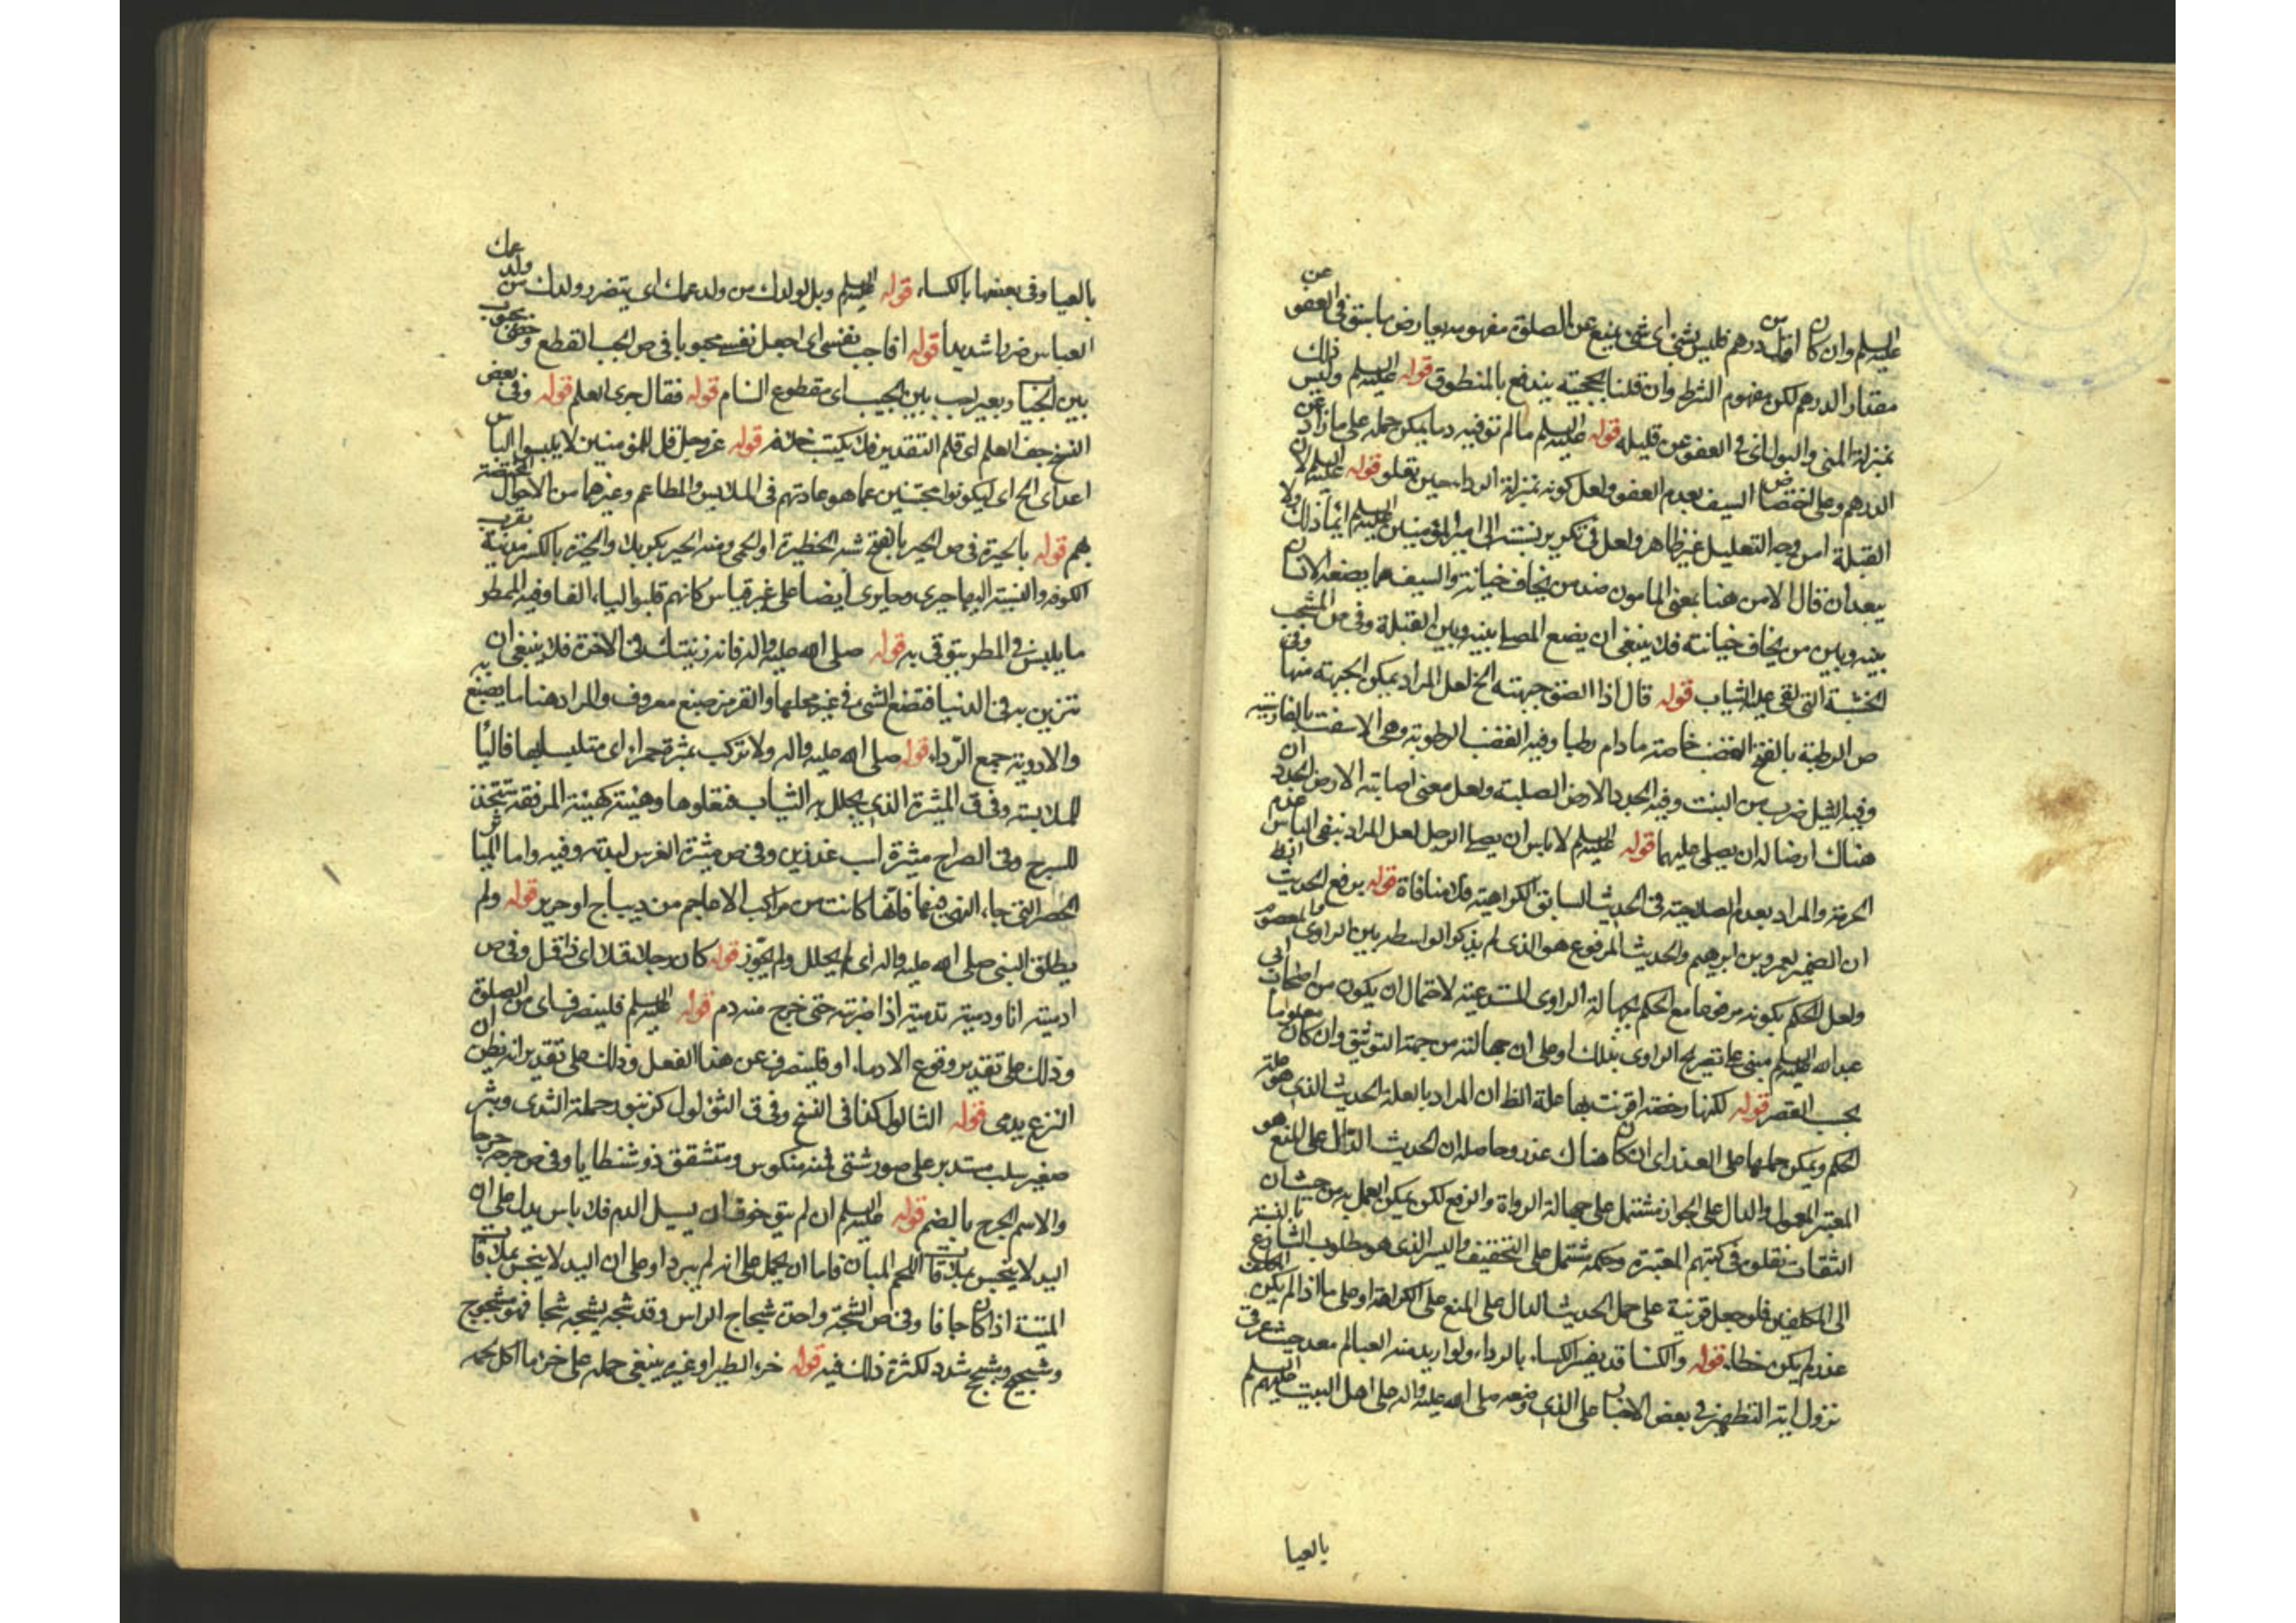 عليه السلم وان كان اقل من درهم فليس بشئ اى شئ يمنع عن الصلوة مفهومه يعارض ما سبق فى العفو عن
مقدار الدرهم لكن مفهوم الشرط وان قلنا بحجيته يندفع بالمنطوق قوله عليه السلم وليس ذلك
بمنزلة المنى والبول اى فى العفو عن قليله قوله عليه السلم ما لم تو فيه دما يمكن حمله على ما زاد عن
الدرهم وعلى اختصاص السيف بعدم العفو ولعل كونه بمنزلة الرداء حين تعلو قوله عليه السلم لان
القبلة امن وجه التعليل غير ظاهر ولعل فى تكرير نسبته الى امير المؤمنين عليه السلم ايماء ذلك ولا
يبعد ان قال الامن هنا بمعنى المامون ضد من يخاف خيانته والسيف مما يضعه الانسان
بينه وبين من يخاف خيانته فلا ينبغى ان يضع المصلى بينه وبين القبلة وفى ص المشجب
الخشبة التى تلقى عليه الثياب قوله قال اذا الصق جبهته الخ لعل المراد يمكن الجبهة منها وفى
ص الرطبة بالفتح القضب خاصة ما دام رطبا وفيه القضب الرطوبة وهى الاسفت بالفارسية
وفيه الثيل ضرب من النبت وفيه الجدد الارض الصلبة ولعل معنى اصابته الارض الجدد ان
هناك ارضا له ان يصلى عليهما قوله عليه السلم لا باس ان يصلى الرجل لعل المراد بنفى الباس عدم
الحرمة والمراد بعدم الصلاحية فى الحديث السابق الكراهية فلا منافاة قوله يرفع الحديث الظ
ان الضمير لعمرو بن ابرهيم والحديث المرفوع هو الذى لم يذكر الواسطة بين الراوى والمعصوم
ولعل الحكم بكونه مرفوعا مع الحكم بجهالة الراوى المستدعية لاحتمال ان يكون من اصحاب ابى
عبد الله عليه السلم مبنى على تصريح الراوى بذلك او على ان جهالته من جهة التوثيق وان كان معلوما
بحسب العصر قوله لكنها رخصة اقترنت بها علة الظ ان المراد بالعلة الحديث الذى هو علة
الحكم ويمكن حملها على العذر اى ان كان هناك عذر وحاصله ان الحديث الدال على المنع هو
المعتبر المعول والدال على الجواز مشتمل على جهالة الرواة والرفع لكن يمكن العمل به من حيث ان
الثقات نقلوه فى كتبهم المعتبرة وحكمه مشتمل على التخفيف واليسر الذى هو مطلوب الشارع بالنسبة
الى المكلفين فلو جعل قرينة على حمل الحديث الدال على المنع على الكراهة او على ما اذا لم يكن المكلف
عذر لم يكن خطاء قوله والكساء قد يفسر الكساء بالرداء ولو اريد منه العبا لم يبعد حيث عرف
نزول اية التطهير فى بعض الاخبار على الذى وضعه صلى الله عليه واله على اهل البيت عليهم السلم
بالعبا
بالعبا وفى بعضها بالكساء قوله عليه السلم ويل لولدك من ولد عمك اى يتضرر ولدك من ولد عمك
العباس ضررا شديدا قوله افاجب نفسى اى اجعل نفسى مجبوبا فى ص الجب القطع وخصى مجبوب
بين الجباب وبعير اجب بين الجبب اى مقطوع السنام قوله فقال جرى القلم قوله وفى بعض
النسخ جف القلم اى قلم التقدير فلا يكتب خلافه قوله عز وجل قل للمؤمنين لا يلبسوا لباس
اعدائى الخ اى ليكونوا مجتنبين عما هو عادتهم فى الملابس والمطاعم وغيرهما من الاحوال المختصة
بهم قوله بالحيرة فى ص الحير بالفتح شبه الحظيرة او الحمى ومنه الحير بكربلا والحيرة بالكسر مدينة بقرب
الكوفة والنسبة اليها حيرى وحارى ايضا على غير قياس كانهم قلبوا الياء الفا وفيه الممطر
ما يلبس فى المطر يتوقى به قوله صلى الله عليه واله فانه زينتك فى الاخرة فلا ينبغى ان
تتزين به فى الدنيا فتضع الشئ فى غير محلها والقرمز صبغ معروف والمراد هنا ما يصبغ به
والاردية جمع الرداء قوله صلى الله عليه واله ولا تركب بمثرة حمراء اى متلبسا بها فالباء
للملابسة وفى ق الميثرة الذى يجلل به الثياب فتعلوها وهيئة كهيئة المرفقة تتخذ
للسرج وفى الصراح ميثرة اسب غدذين وفى ص ميثرة الفرس لبدته وفيه واما المياثر
الحمر التى جاء النهى فيها فانها كانت من مراكب الاعاجم من ديباج او حرير قوله ولم
يطلق النبى صلى الله عليه واله اى لم يحلل ولم يجوز قوله كان رجلا قملا اى ذا قمل وفى ص
ادميته انا ودميته تدمية اذا ضربته حتى خرج منه دم قوله عليه السلم فلينصرف اى من الصلوة
وذلك على تقدير وقوع الادماء او فلينصرف عن هذا الفعل وذلك على تقدير انه يظن ان
النزع يدمى قوله الثالول كذا فى النسخ وفى ق الثؤلول كزنبور حلمة الثدى وبثر
صغير صلب مستدير على صور شتى فمنه منكوس ومتشقق ذو شظايا وفى ص جرحه جرحا
والاسم الجرح بالضم قوله عليه السلم ان لم يتو خوف ان يسيل الدم فلا باس يدل على ان
اليد لا ينجس بملاقات اللحم المبان فاما ان يحمل على انه لم يبرد او على ان اليد لا ينجس بملاقات
الميتة اذا كان جافا وفى ص الشجة واحدة شجاج الراس وقد شجه يشجه شجا فهو مشجوج
وشجيج وشجج شدد لكثرة ذلك فيه قوله خرء الطير او غيره ينبغى حمله على خرء ما اكل لحمه